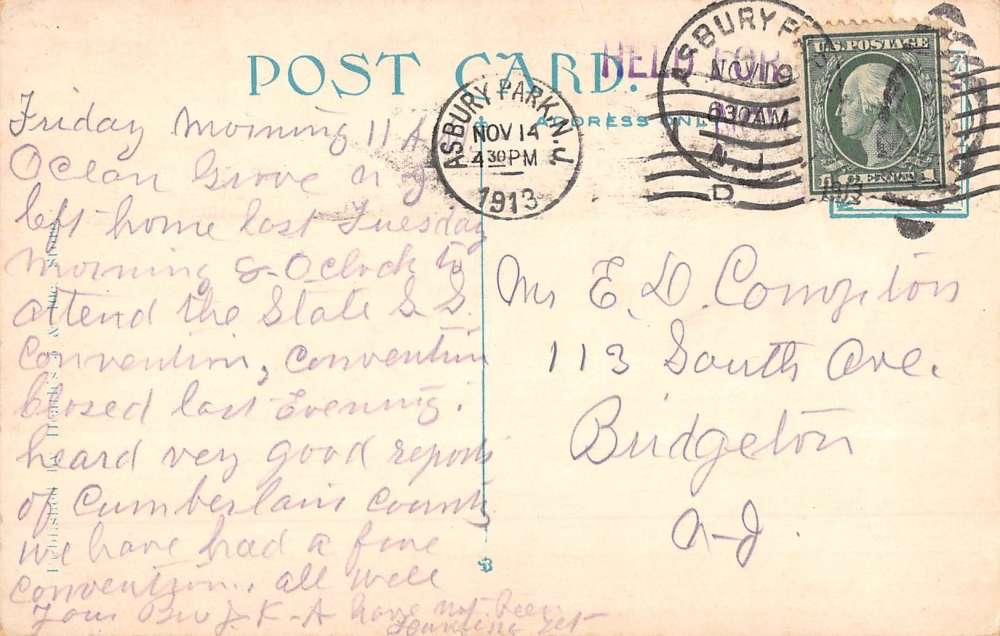 POST CARD.
HELD FOR
ADDRESS ONLY
ASBURY PARK, N.J.
NOV 14
4 30 PM
1913
ASBURY PARK
NOV 19
6 30 AM
N.J.
D
1913
U.S. POSTAGE
1 CENT 1
Friday Morning 11 A
Ocean Grove N J
left home last Tuesday
Morning 8-Oclock to
attend the State S.S.
Convention, Convention
Closed last Evening.
heard very good reports
of Cumberland County
We have had a fine
convention, all well
Your Bro J. K-A have not been
yet
Mr E. D. Compton
113 South Ave.
Bridgeton
N-J.
Published by